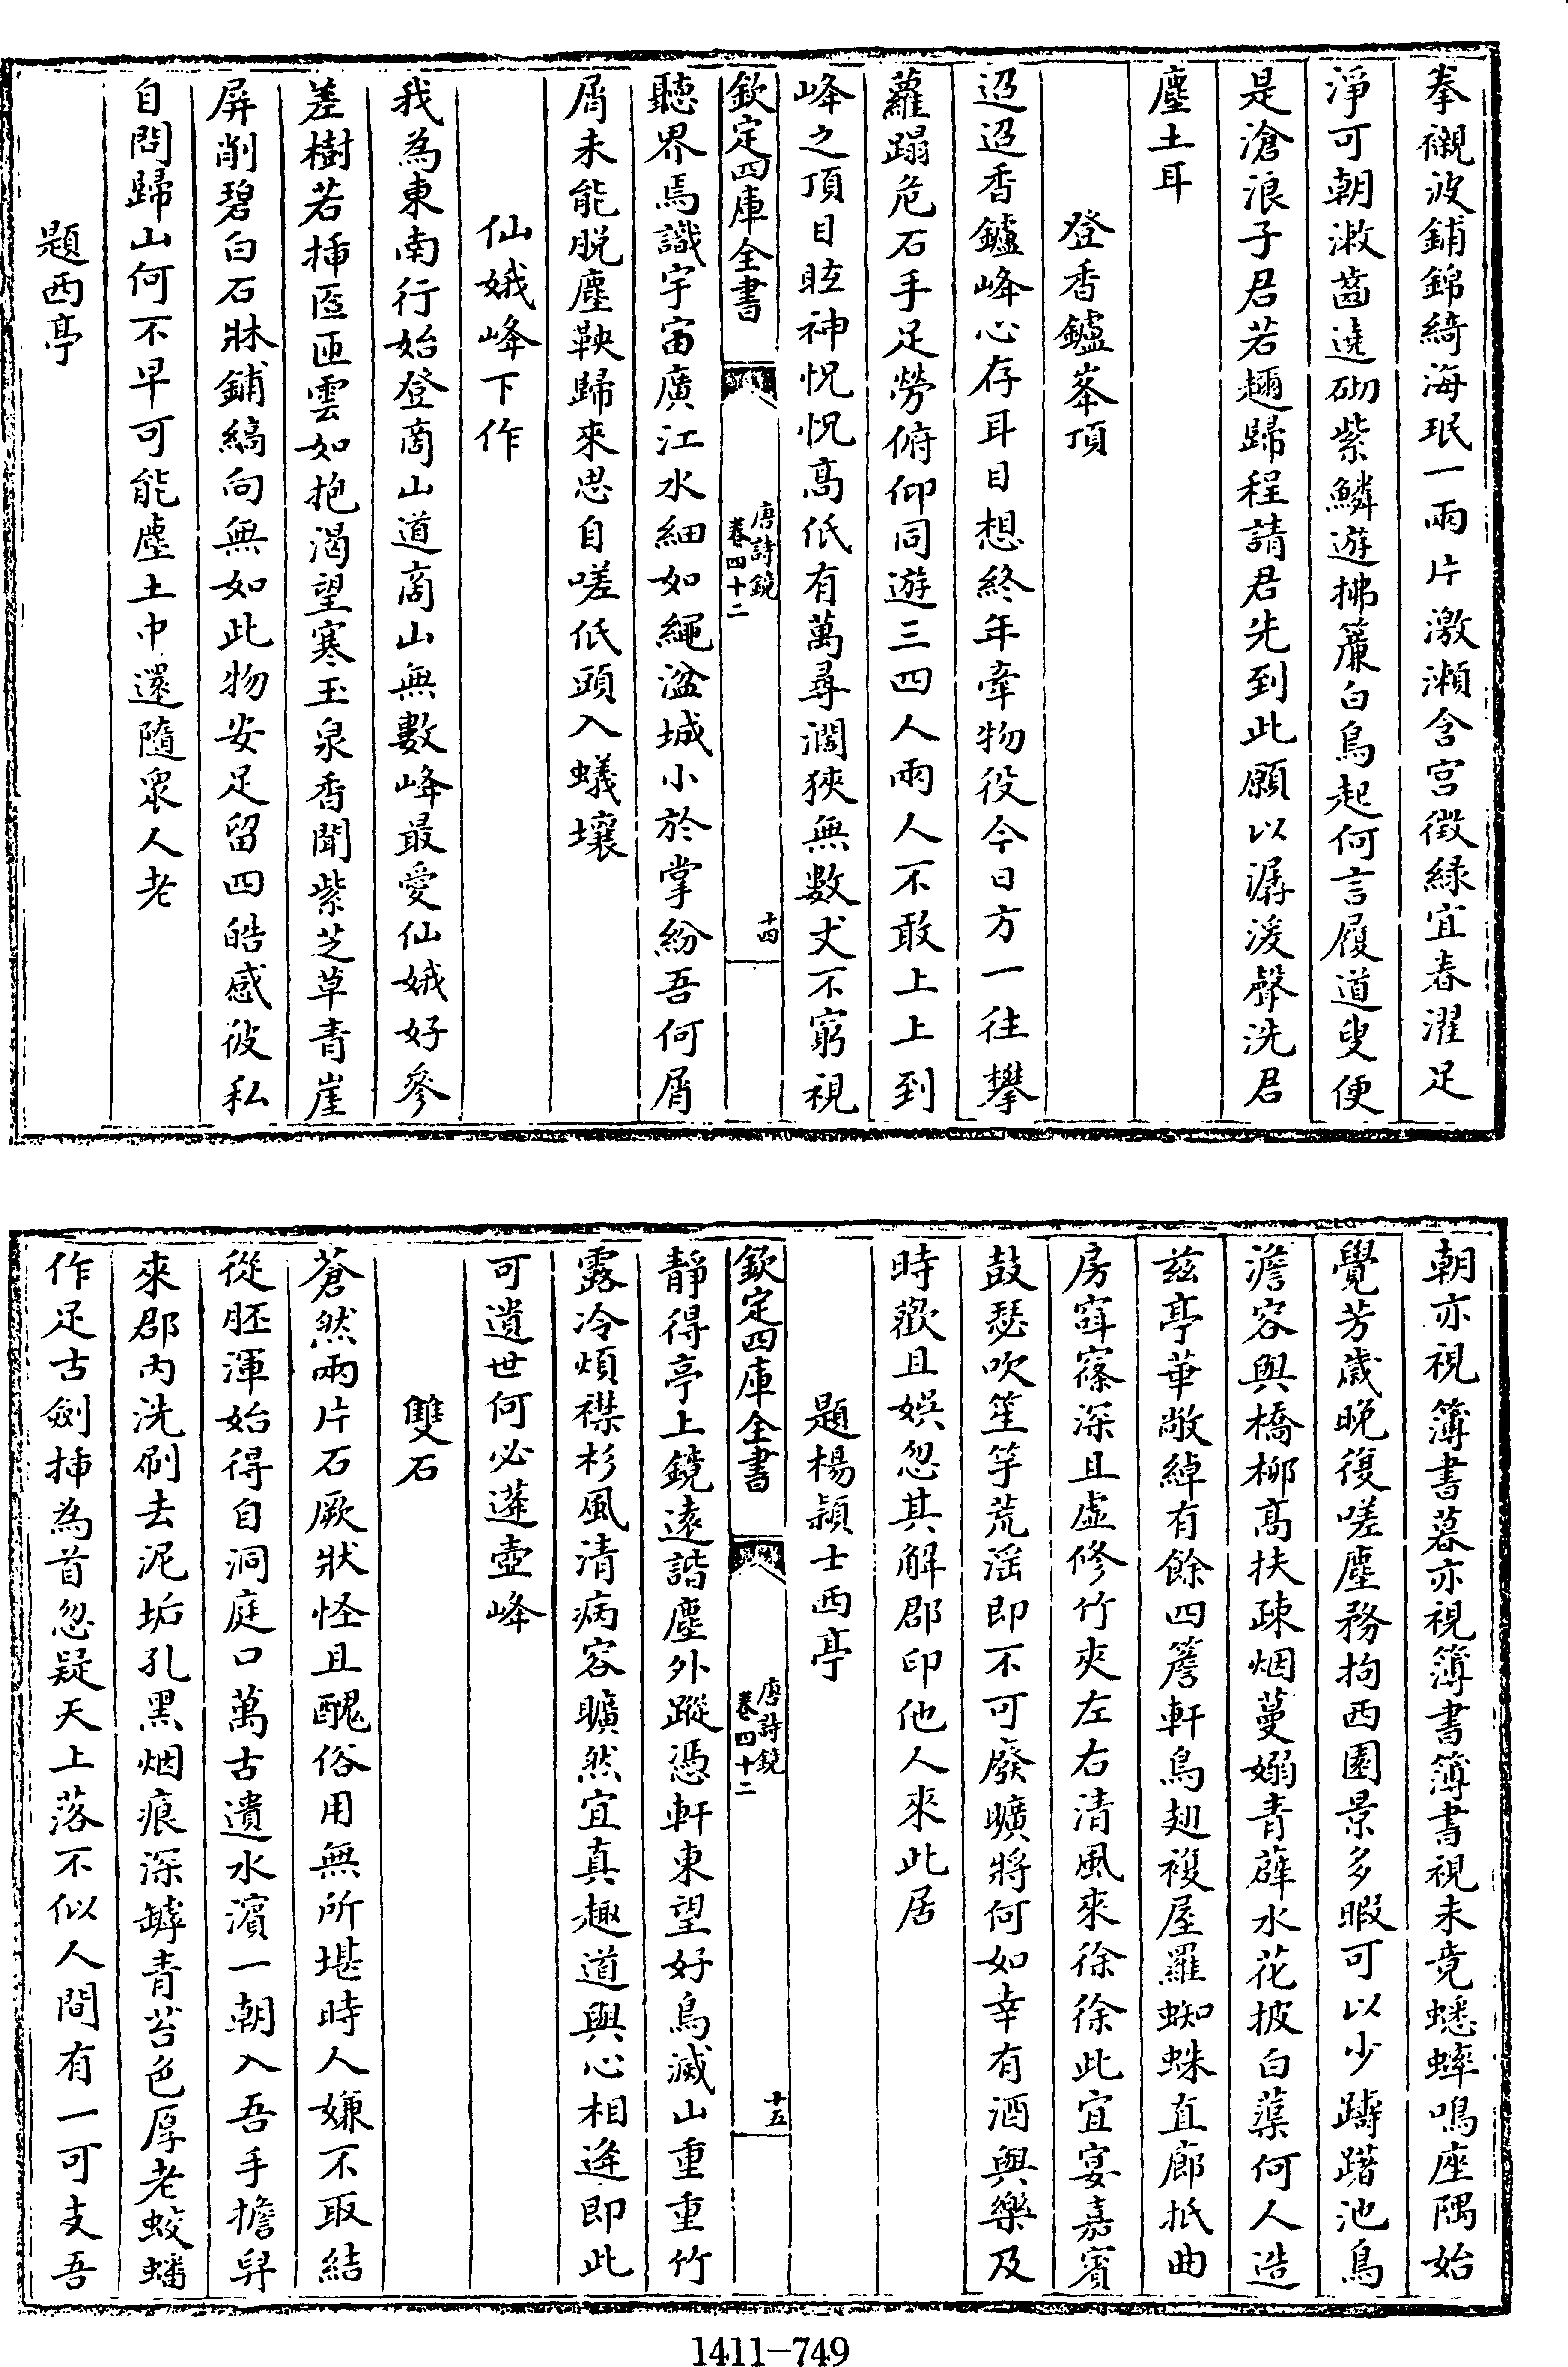 拳襯波鋪錦綺海珉一兩片激瀨含宫徴緑宜春濯足
淨可朝漱齒遶砌紫鱗遊拂簾白鳥起何言履道叟便
是滄浪子君若趣歸程請君先到此願以潺湲聲洗君
塵土耳
登香鑪峯頂
迢迢香鑪峰心存耳目想終年牽物役今日方一往攀
蘿蹋危石手足勞俯仰同遊三四人兩人不敢上上到
峰之頂目眩神怳怳高低有萬尋濶狹無數丈不窮視
欽定四庫全書
唐詩鏡
卷四十二
十四
聽界焉識宇宙廣江水細如繩湓城小於掌紛吾何屑
屑未能脱塵鞅歸來思自嗟低頭入蟻壤
仙娥峰下作
我為東南行始登商山道商山無數峰最愛仙娥好參
差樹若揷匼匝雲如抱渴望寒玉泉香聞紫芝草青崖
屏削碧白石牀鋪縞向無如此物安足留四皓感彼私
自問歸山何不早可能塵土中還隨衆人老
題西亭
朝亦視簿書暮亦視簿書簿書視未竟蟋蟀鳴座隅始
覺芳歲晚復嗟塵務拘西園景多暇可以少躊躇池鳥
澹容與橋柳高扶疎烟蔓嫋青薜水花披白蕖何人造
兹亭華敞綽有餘四簷軒鳥翅複屋羅蜘蛛直廊抵曲
房窅窱深且虚修竹夾左右清風來徐徐此宜宴嘉賓
鼓瑟吹笙竽荒淫即不可廢曠將何如幸有酒與樂及
時歡且娯忽其解郡印他人來此居
題楊穎士西亭
欽定四庫全書
唐詩鏡
卷四十二
十五
靜得亭上鏡遠諧塵外蹤憑軒東望好鳥滅山重重竹
露冷煩襟杉風清病容曠然宜真趣道與心相逢即此
可遺世何必蓬壺峰
雙石
蒼然兩片石厥狀怪且醜俗用無所堪時人嫌不取結
從胚渾始得自洞庭口萬古遺水濱一朝入吾手擔舁
來郡内洗刷去泥垢孔黑烟痕深罅青苔色厚老蛟蟠
作足古劍揷為首忽疑天上落不似人間有一可支吾
1411-749